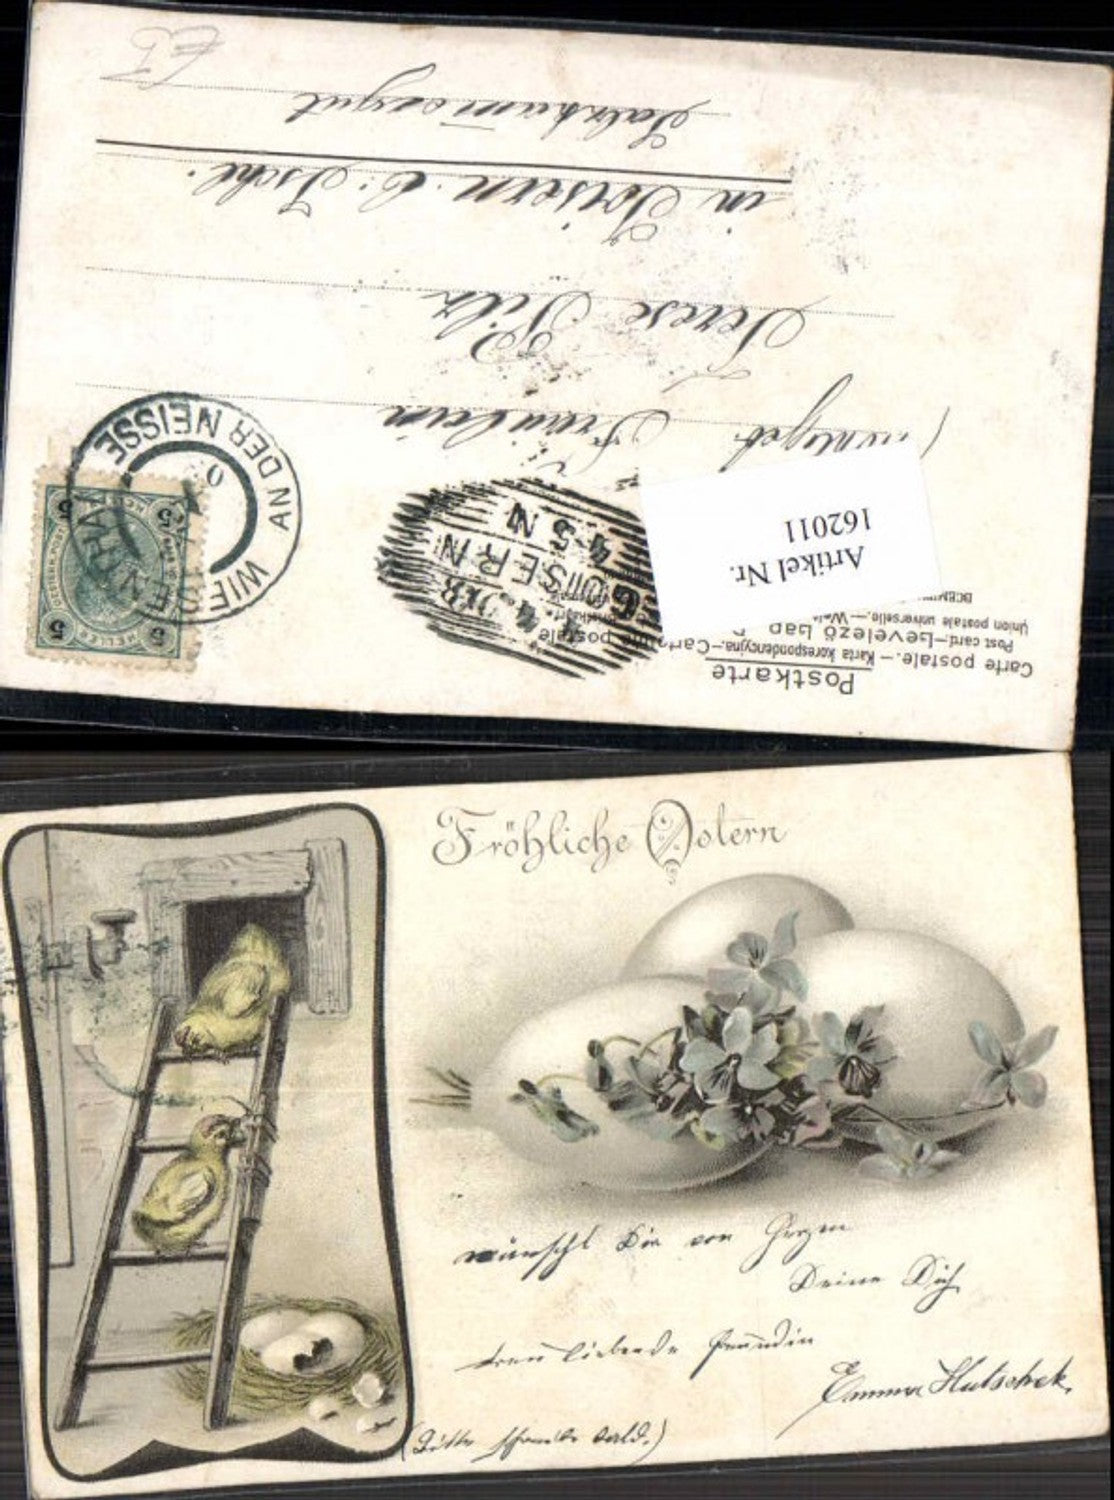 Postkarte
Carte postale.—Karta korespondencyjna.—Carto
Post card.—Levelező Lap
Union postale universelle.—We
Artikel Nr.
162011
GOISERN
WIESENTHAL AN DER NEISSE
5 5
HELLER
5 5
Fräulein
Terese Pilz
in Goisern b. Ischl.
Salzkammergut
Fröhliche Ostern
wünscht Dir von Herzen
Deine Dich
treu liebende Freundin
Emma Hutschek.
(Bitte schreibe bald.)